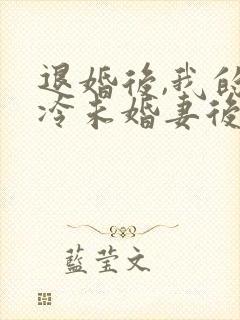 退婚後,我的
冷未婚妻後
藍莹文